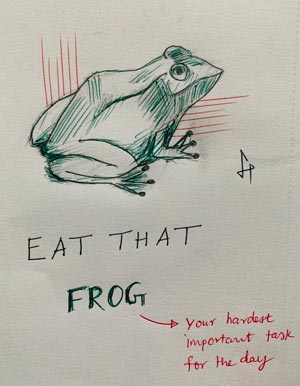 EAT THAT
FROG
Your hardest
important task
for the day